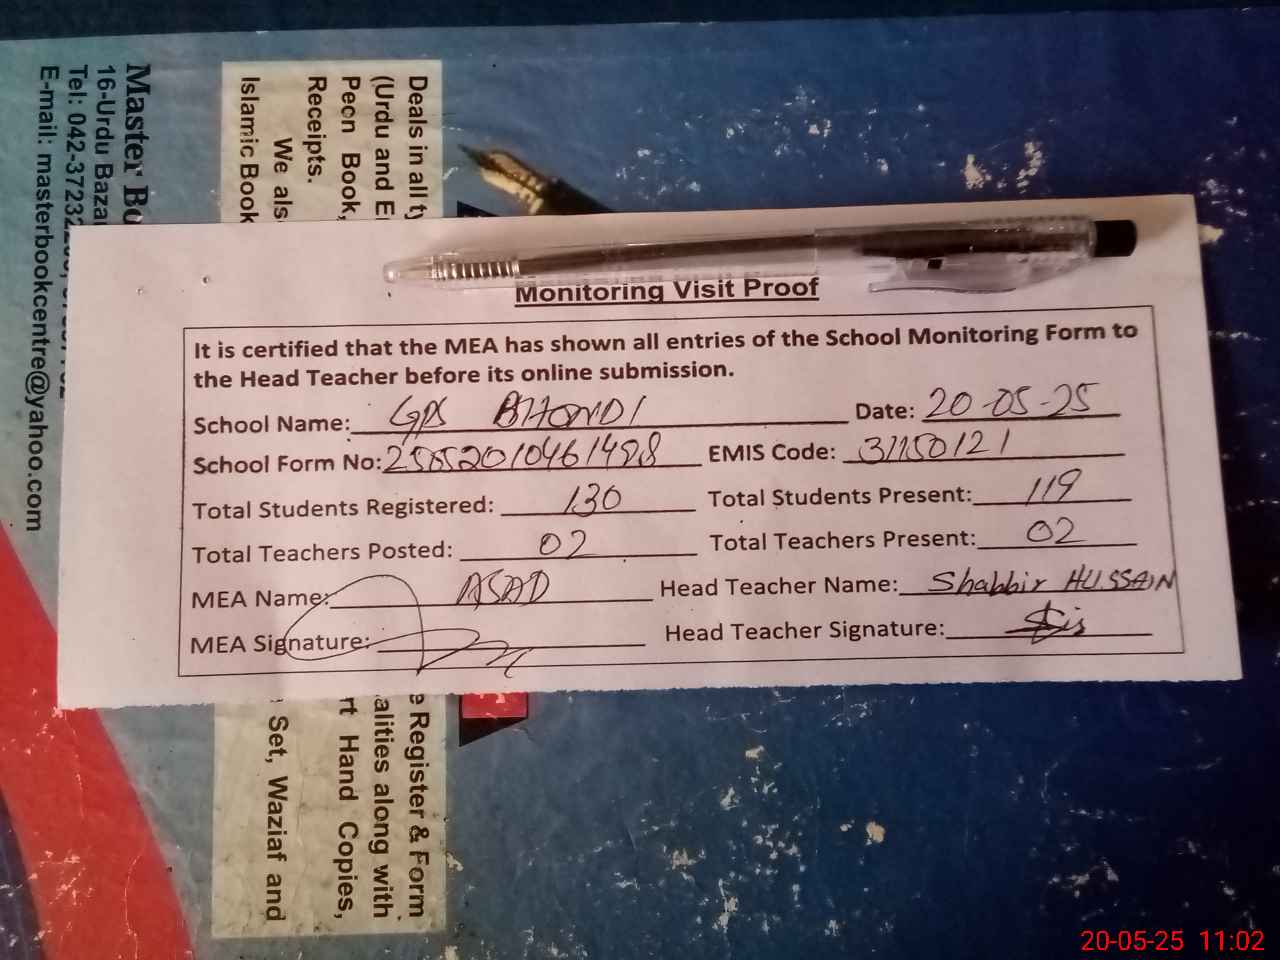 Monitoring Visit Proof
It is certified that the MEA has shown all entries of the School Monitoring Form to
the Head Teacher before its online submission.
School Name: GPS BHONDI Date: 20-05-25
School Form No: EMIS Code: 31150121
Total Students Registered: 130 Total Students Present: 119
Total Teachers Posted: 02 Total Teachers Present: 02
MEA Name: ASAD Head Teacher Name: Shabbir HUSSAIN
MEA Signature: Head Teacher Signature:
Master
16-Urdu
Tel:
E-mail: masterbookcentre@yahoo.com
Deals in all
(Urdu and
Peon Book,
Receipts.
We
Islamic Book
Register & Form
along with
Hand Copies,
Set, Waziaf and
20-05-25 11:02